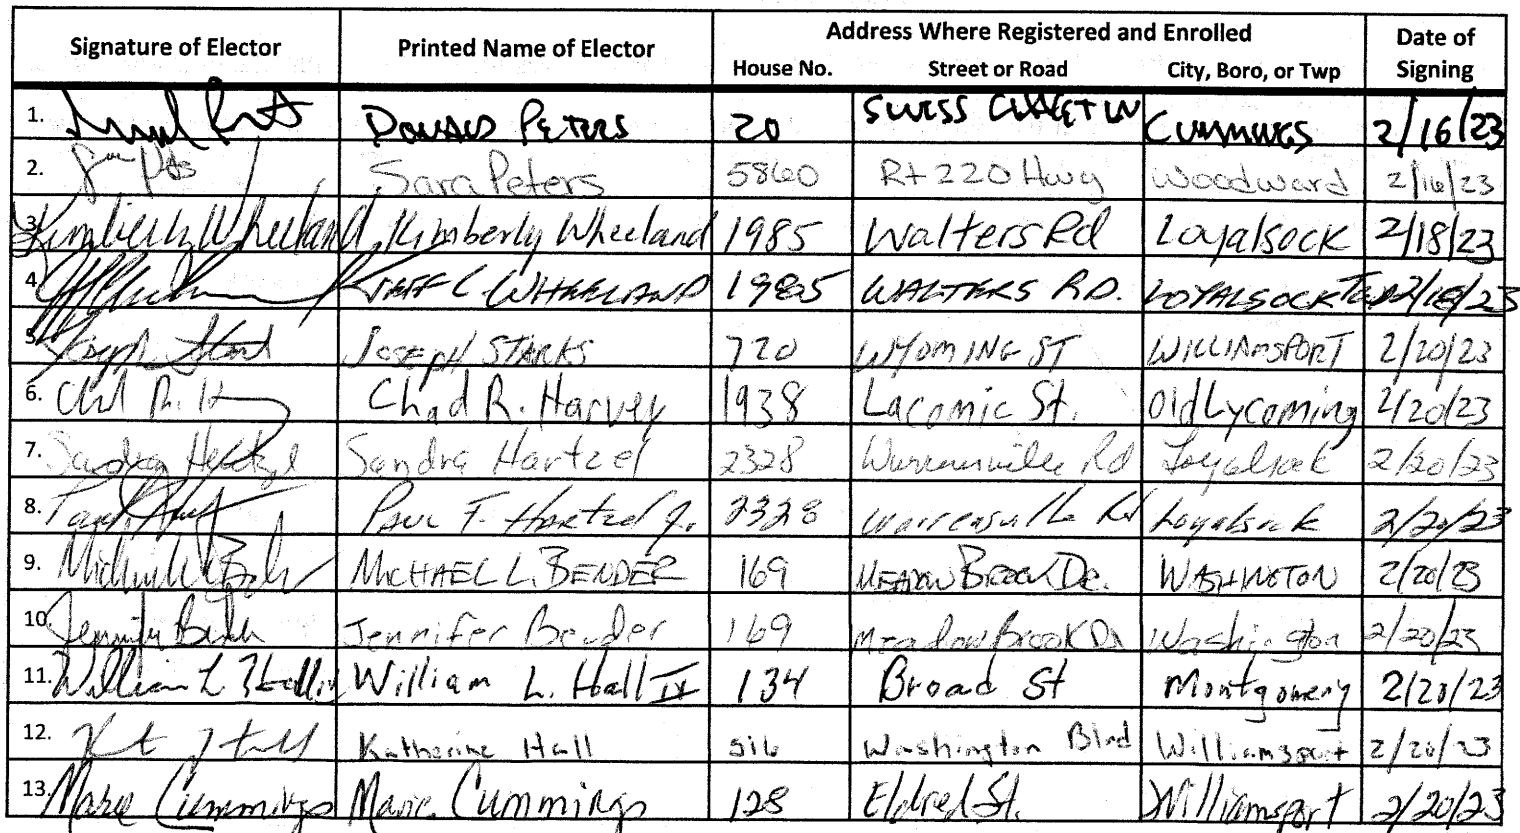 Signature of Elector Printed Name of Elector Address Where Registered and Enrolled Date of Signing
House No. Street or Road City, Boro, or Twp
1. DONALD PETERS 20 SWISS CHALET LN CUMMINGS 2/16/23
2. Sara Peters 5860 Rt 220 Hwy Woodward 2/16/23
3. Kimberly Wheeland Kimberly Wheeland 1985 Walters Rd Loyalsock 2/18/23
4. JEFF C. WHEELAND 1985 WALTERS RD. LOYALSOCK Twp 2/18/23
5. Joseph Starks JOSEPH STARKS 720 WYOMING ST WILLIAMSPORT 2/20/23
6. Chad R. Harvey 1938 Lacomic St. Old Lycoming 2/20/23
7. Sandra Hartzel Sandra Hartzel 2328 Warrensville Rd Loyalsock 2/20/23
8. Paul F. Hartzel Jr. 2328 Warrensville Rd Loyalsock 2/20/23
9. MICHAEL L. BENDER 169 MEADOW BROOK DR. WASHINGTON 2/20/23
10. Jennifer Bender Jennifer Bender 169 Meadow Brook Dr Washington 2/20/23
11. William L Hall IV William L. Hall IV 134 Broad St Montgomery 2/20/23
12. Katherine Hall 516 Washington Blvd Williamsport 2/20/23
13. Marie Cummings Marie Cummings 128 Eldred St. Williamsport 2/20/23